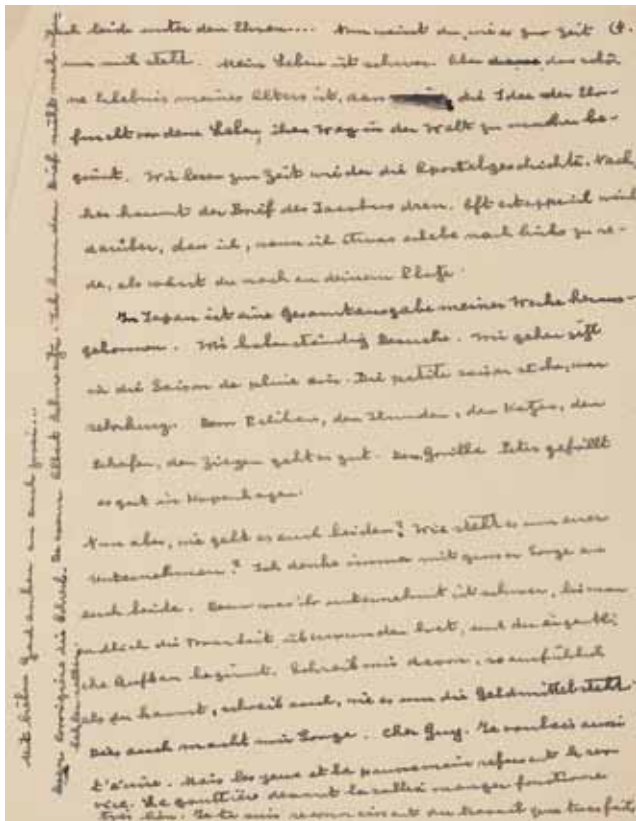 Euch beide unter den Ehren.... Nun weint du, wie es zur Zeit
um mich steht. Mein Leben ist schwer. Aber das schö-
ne Erlebnis meines Alters ist, dass die Idee der Ehr-
furcht vor dem Leben ihren Weg in der Welt zu machen be-
ginnt. Wir lesen zur Zeit wieder die Apostelgeschichte. Nach-
her kommt der Brief des Jacobus dran. Oft ertappe ich mich
darüber, dass ich, wenn ich etwas erlebe nach links zu re-
de, als wärst du noch an deinem Platze.
In Japan ist eine Gesamtausgabe meiner Werke heraus-
gekommen. Wir haben ständig Besuche. Wir gehen jetzt
in die Saison de pluie ein. Die petite saison sèche war
schwierig. Den Pelikan, den Hunden, den Katzen, den
Schafen, den Ziegen geht es gut. Dem Gorilla Peter gefällt
es gut in Kopenhagen.
Nun aber, wie geht es euch beiden? Wie steht es um euer
Unternehmen? Ich denke immer mit grosser Sorge an
euch beide. Denn was ihr unternehmt ist schwer, bis man
endlich die überwunden hat, und der eigentli-
che Aufbau beginnt. Schreib mir davon, so ausführlich
als du kannst, schreib auch, wie es um die Geldmittel steht.
Dies auch macht mir Sorge. Cher Guy. Je voulais aussi
t'écrire. Mais les yeux et la pauvre main refusent le ser-
vice. La gouttière devant la salle à manger fonctionne
très bien. Je te suis reconnaissant du travail que tu as fait
Mit lieben Gedanken an euch zwei...
die Schrift. De coeur Albert Schweitzer. Ich kann den Brief nicht mehr